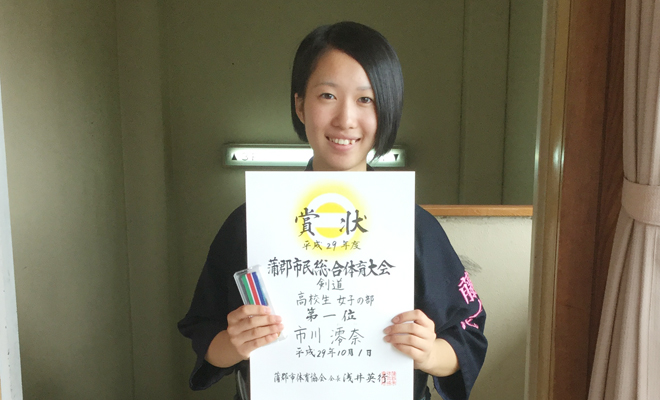 賞状
平成29年度
蒲郡市民総合体育大会
剣道
高校生 女子の部
第一位
市川 澪奈
平成29年10月1日
蒲郡市体育協会 会長 浅井英行